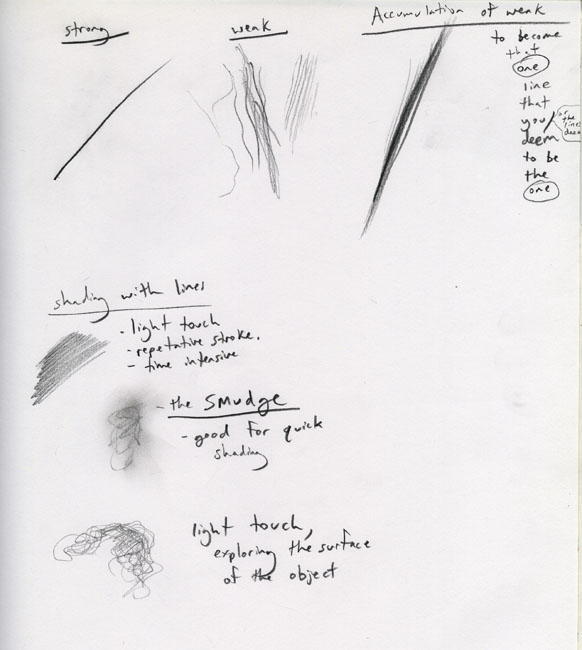 strong
weak
Accumulation of weak
to become
that
one
line
that
you
deem
to be
the
one
or
the
lines
deem
shading with lines
- light touch
- repetative stroke.
- time intensive
- the SMUDGE
- good for quick
shading
light touch,
exploring the surface
of the object